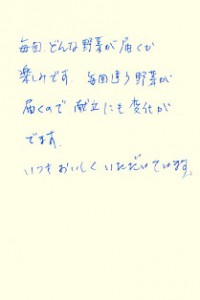 毎回、どんな野菜が届くか
楽しみです。毎回違う野菜が
届くので献立にも変化が
でます。
いつもおいしくいただいています。